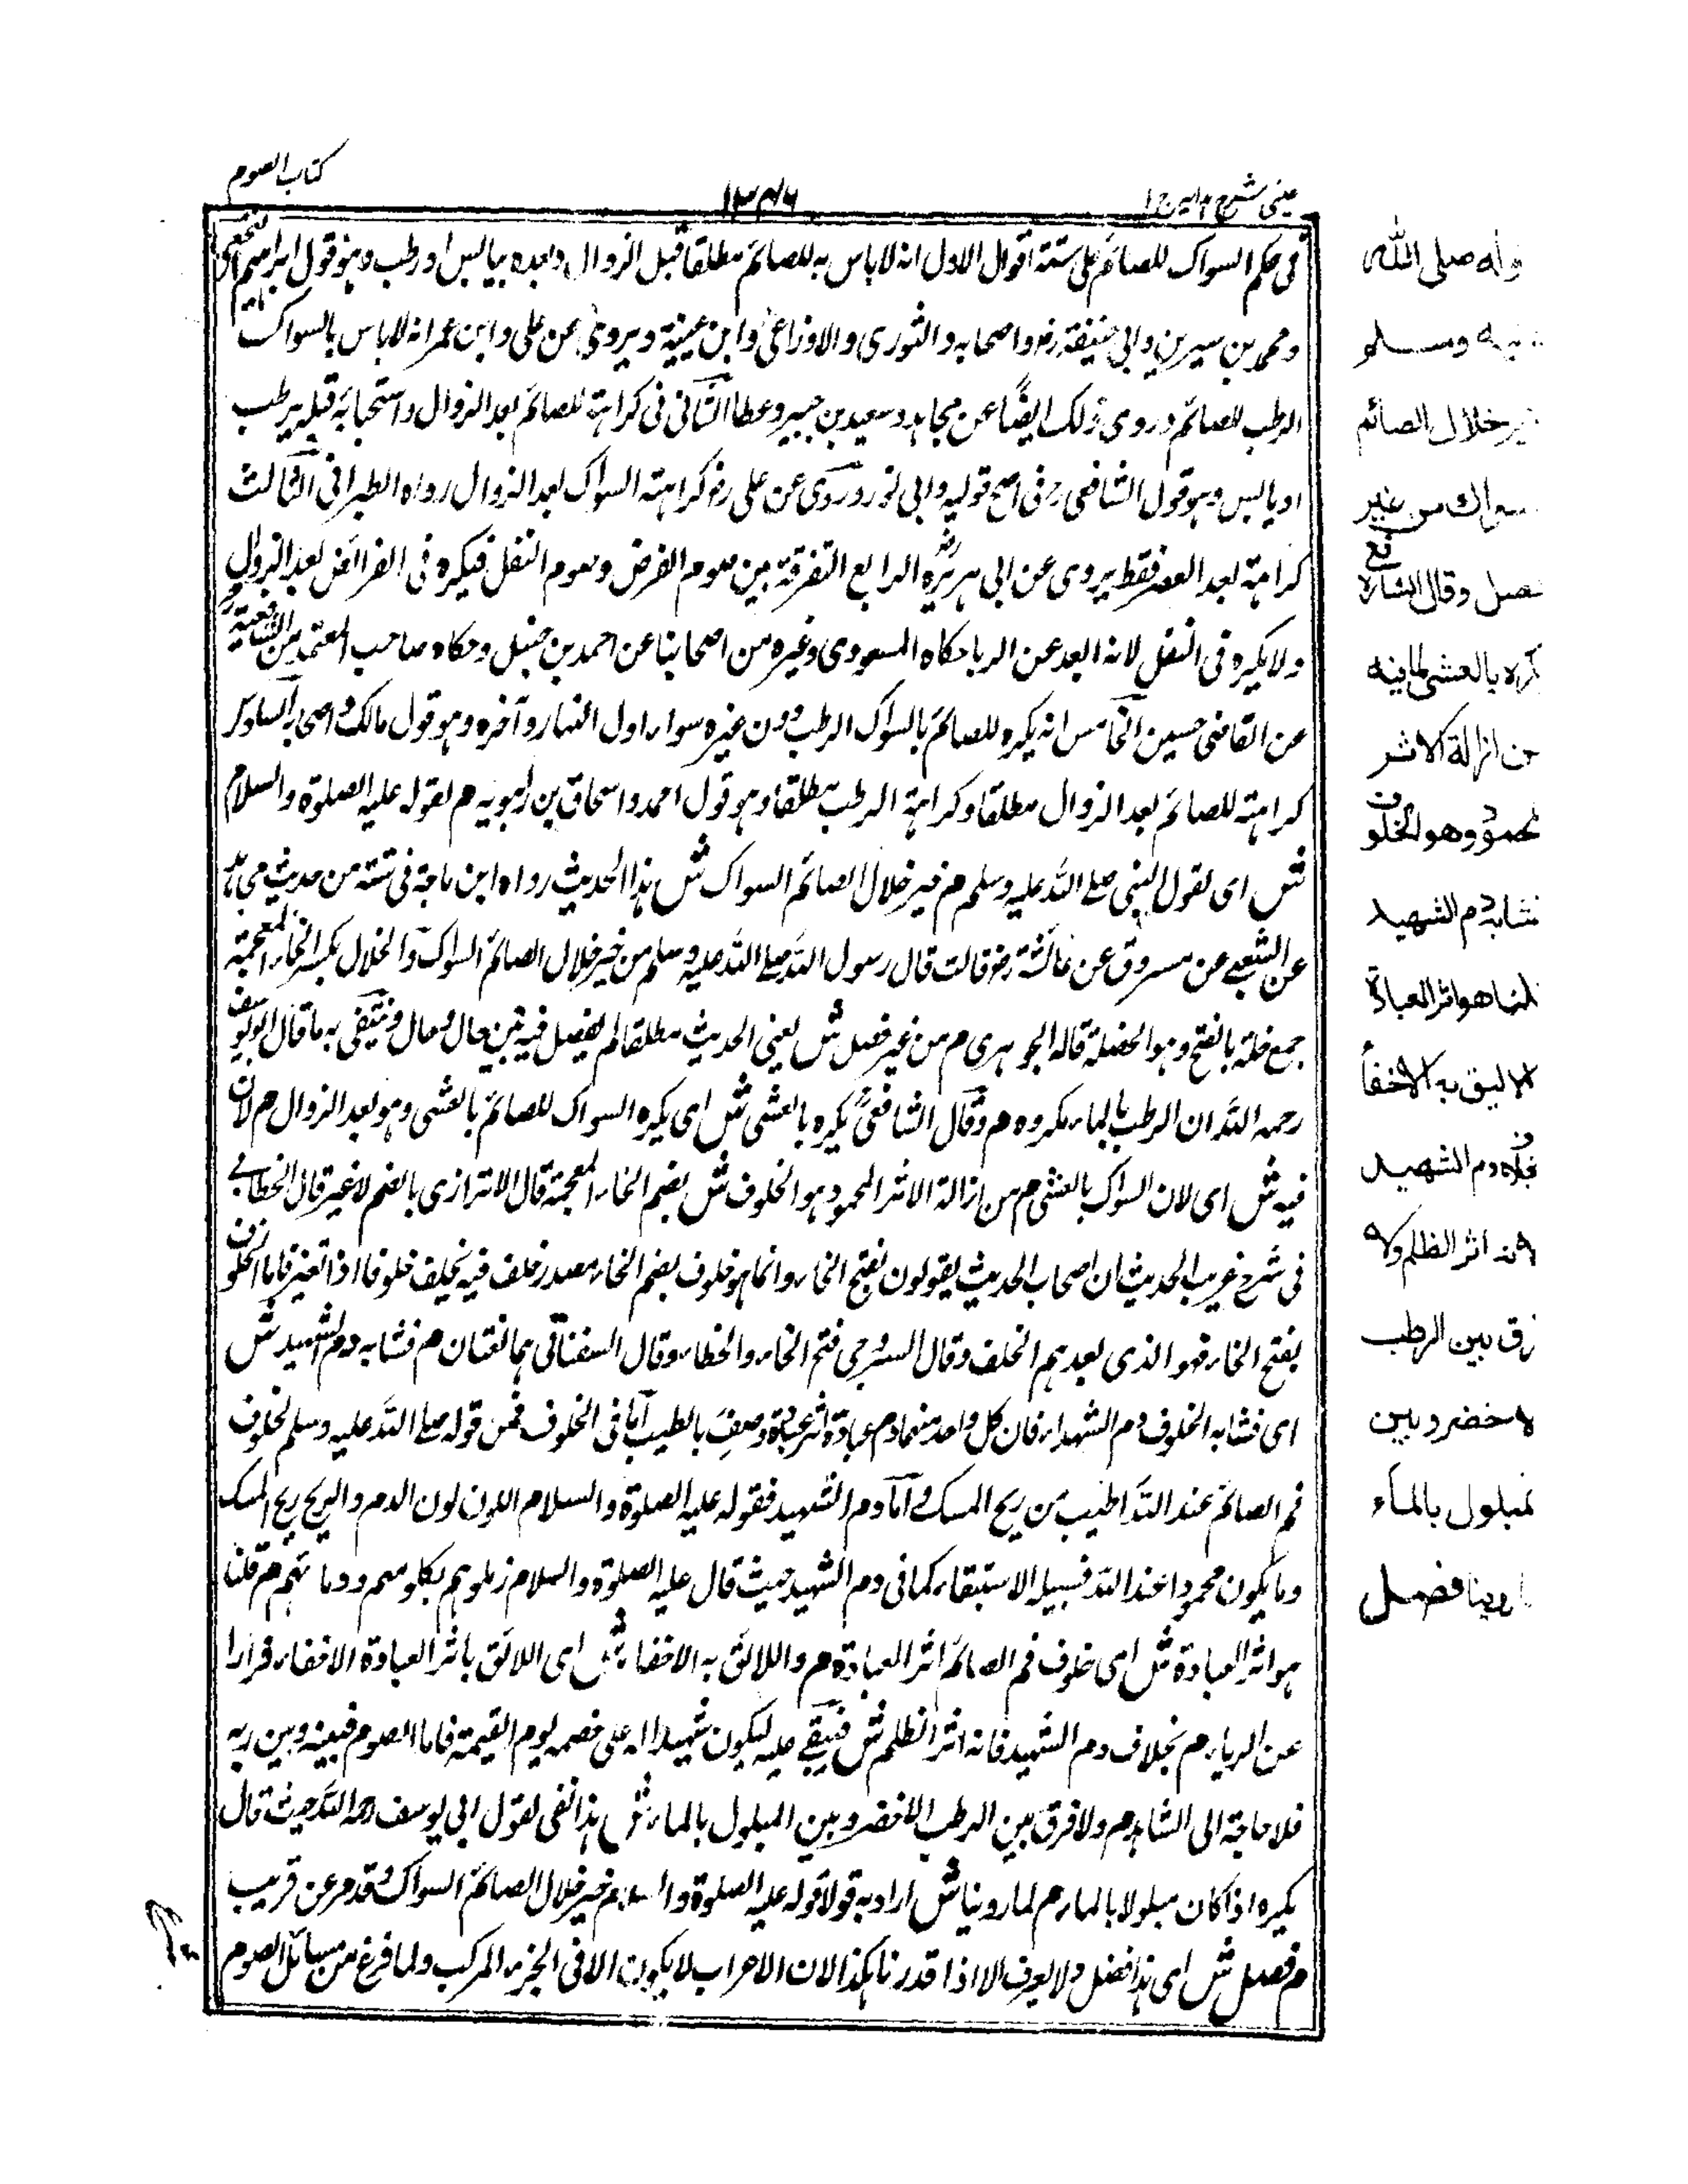 كتاب الصوم
١٣٤٦
عينى شرح هدايه ج ١
فى حكم السواك للصائم على ستة اقوال الاول انه لا باس به للصائم مطلقا قبل الزوال وبعده بيابس او رطب وهو قول ابراهيم النخعى
ومحمد بن سيرين وابى حنيفة رض واصحابه والثورى والاوزاعى وابن عيينة ويروى عن على وابن عمر انه لا باس بالسواك
الرطب للصائم وروى ذلك ايضا عن مجاهد وسعيد بن جبير وعطا الثانى فى كراهته للصائم بعد الزوال واستحبابه قبله برطب
او يابس وهو قول الشافعى رح فى اصح قوليه وابى ثور وروى عن على رض كراهته السواك بعد الزوال رواه الطبرانى الثالث
كراهته بعد العصر فقط يروى عن ابى هريرة رض الرابع التفرقة بين صوم الفرض وصوم النفل فيكره فى الفرائض بعد الزوال
ولا يكره فى النفل لانه ابعد عن الريا حكاه المسعودى وغيره من اصحابنا عن احمد بن حنبل وحكاه صاحب المعتمد من الشافعية
عن القاضى حسين الخامس انه يكره للصائم بالسواك الرطب دون غيره سواء اول النهار وآخره وهو قول مالك واصحابه السادس
كراهته للصائم بعد الزوال مطلقا وكراهة الرطب مطلقا وهو قول احمد واسحاق بن راهويه م لقوله عليه الصلوة والسلام
ش اى لقول النبى صلى الله عليه وسلم م خير خلال الصائم السواك ش هذا الحديث رواه ابن ماجة فى سننه من حديث مجالد
عن الشعبى عن مسروق عن عائشة رض قالت قال رسول الله صلى الله عليه وسلم من خير خلال الصائم السواك والخلال بكسر الخاء المعجمة
جمع خلة بالفتح وهو الخصلة قاله الجوهرى م من غير فصل ش يعنى الحديث مطلقا لم يفصل فيه بين حال وحال وينتفى به ما قال ابو يوسف
رحمه الله ان الرطب بالماء مكروه م وقال الشافعى يكره بالعشى ش اى يكره السواك للصائم بالعشى وهو بعد الزوال م لان
فيه ش اى لان السواك بالعشى م من ازالة الاثر المحمود هو الخلوف ش بضم الخاء المعجمة قال الاترازى بالضم لا غير قال الخطابى
فى شرح غريب الحديث ان اصحاب الحديث يقولون بفتح الخاء وانما هو خلوف بضم الخاء مصدر خلف فيه يخلف خلوفا اذا تغير فاما الخلوف
بفتح الخاء فهو الذى يعد ثم الخلف وقال السروجى فتح الخاء والخطاء وقال السغناقى هما لغتان م فشابه دم الشهيد ش
اى فشابه الخلوف دم الشهداء فان كل واحد منهما دم عبادة وصف بالطيب اما فى الخلوف فمن قوله صلى الله عليه وسلم لخلوف
فم الصائم عند الله اطيب من ريح المسك واما دم الشهيد فقوله عليه الصلوة والسلام اللون لون الدم والريح ريح المسك
وما يكون محمودا عند الله فسبيله الاستبقاء كما فى دم الشهيد حيث قال عليه الصلوة والسلام زملوهم بكلومهم ودمائهم م قلنا
هو اثر العبادة ش اى خلوف فم الصائم اثر العبادة م واللائق به الاخفاء ش اى اللائق باثر العبادة الاخفاء فرارا
عن الرياء م بخلاف دم الشهيد فانه اثر الظلم ش فيبقى عليه ليكون شهيدا له على خصمه يوم القيمة فاما الصوم فبينه وبين ربه
فلا حاجة الى الشاهد م ولا فرق بين الرطب الاخضر وبين المبلول بالماء ش هذا نفى لقول ابى يوسف رحمه الله حيث قال
يكره اذا كان مبلولا بالماء م لما روينا ش اراد به قوله عليه الصلوة والسلام خير خلال الصائم السواك وقد مر عن قريب
م فصل ش اى هذا فصل ولا يعرف الا اذا قدرنا هكذا لان الاعراب لا يكون الا فى الجزء المركب ولما فرغ من مسائل الصوم
وله صلى الله
عليه وسلم
خير خلال الصائم
سواك من غير
فصل وقال الشافعى
يكره بالعشى لما فيه
من ازالة الاثر
المحمود وهو الخلوف
فشابه دم الشهيد
قلنا هو اثر العبادة
الاليق به الاخفاء
بخلاف دم الشهيد
لانه اثر الظلم ولا
فرق بين الرطب
لاخضر وبين
لمبلول بالماء
لما روينا فصل